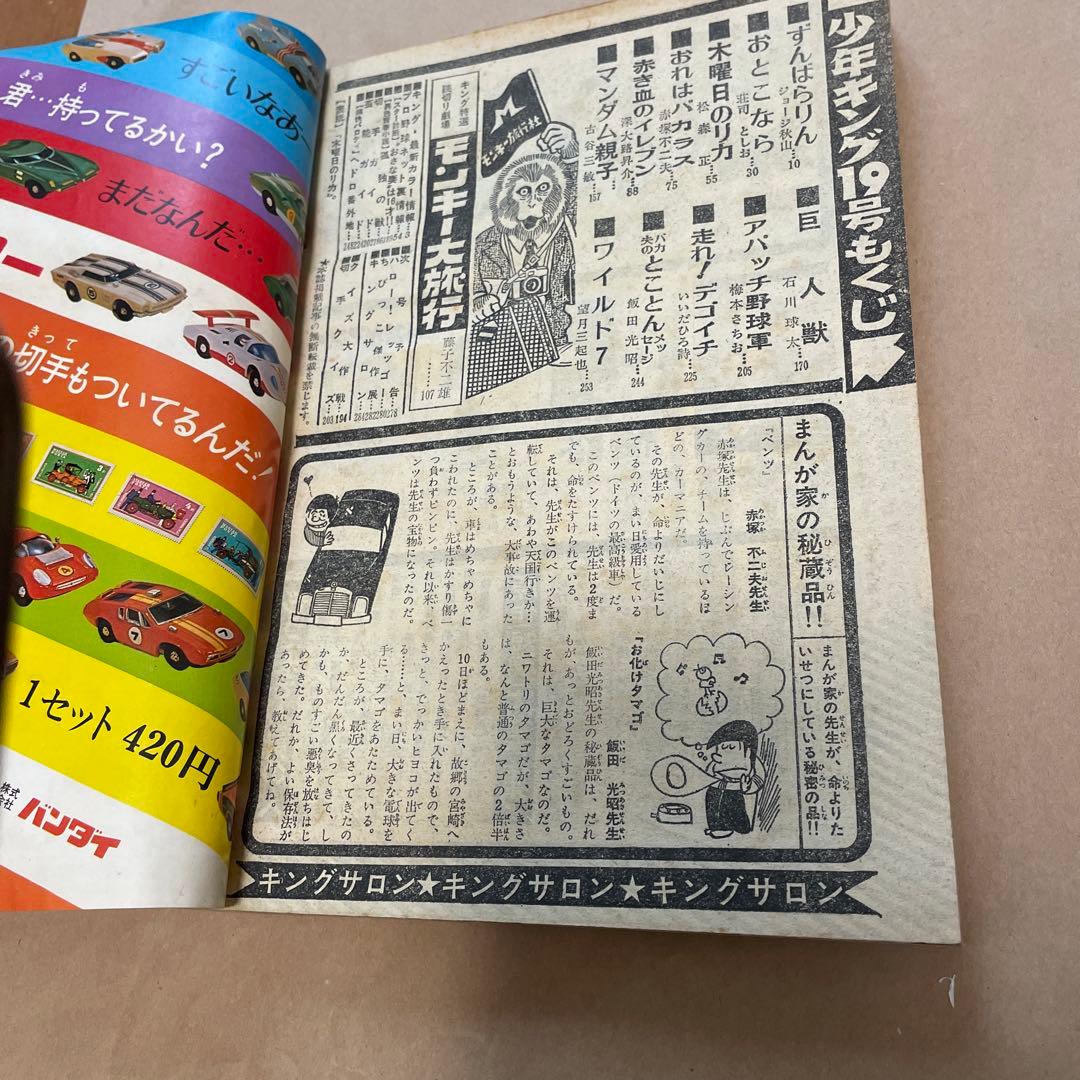 少年キング19号もくじ
ずんはらりん
ジョージ秋山…10
おとこなら
荘司としお…30
木曜日のリカ
松森 正…55
おれはバカラス
赤塚不二夫…75
赤き血のイレブン
深大路昇介…88
マンダム親子
古谷三敏…157
巨人獣
石川球太…170
アパッチ野球軍
梅本さちお…205
走れ!デゴイチ
いいだひろ詩…225
バカ夫の とことんメッセージ
飯田光昭…244
ワイルド7
望月三起也…253
モンキー旅行社
キング特選
読切り劇場
モンキー大旅行
藤子不二雄
……107
キング最新カラー情報…3
プロ野球ネット裏情報…54
次号予告…278
ハロー!レッツゴー…280
ちびっこ傑作展…282
キングサロン…284
クイズ大作戦…194
切手クイズ…203
*本誌掲載記事の無断転載を禁じます。
まんが家の秘蔵品!!
まんが家の先生が、命よりた
いせつにしている秘密の品!!
『ベンツ』
赤塚 不二夫先生
赤塚先生は、じぶんでレーシン
グカーの、チームを持っているほ
どの、カーマニアだ。
その先生が、命よりだいじにし
ているのが、まい日愛用している
ベンツ(ドイツの最高級車)だ。
このベンツには、先生は2度ま
でも、命をたすけられている。
それは、先生がこのベンツを運
転していて、あわや天国行きか…
とおもうような、大事故にあった
ことがある。
ところが、車はめちゃめちゃに
こわれたのに、先生はかすり傷一
つ負わずピンピン。それ以来、ベ
ンツは先生の宝物になったのだ。
『お化けタマゴ』
飯田 光昭先生
飯田光昭先生の秘蔵品は、だれ
もが、あっとおどろくすごいもの。
それは、巨大なタマゴなのだ。
ニワトリのタマゴだが、大きさ
は、なんと普通のタマゴの2倍半
もある。
10日ほどまえに、故郷の宮崎へ
かえったとき手に入れたもので、
きっと、でっかいヒヨコが出てく
る……と、まい日、大きな電球を
手に、タマゴをあたためている。
ところが、最近くさってきたの
か、だんだん黒くなってきて、し
かも、ものすごい悪臭を放ちはじ
めてきた。だれか、よい保存法が
あったら、教えてあげてね。
キングサロン★キングサロン★キングサロン
すごいなあ～
君…持ってるかい?
まだなんだ…
の切手もついてるんだ!
1セット 420円
株式会社 バンダイ